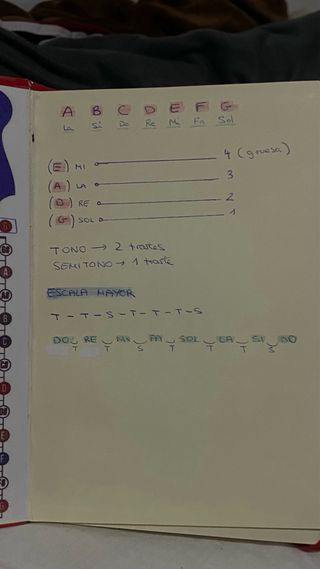 A B C D E F G
La Si Do Re Mi Fa Sol
(E) MI 4 (gruesa)
(A) LA 3
(D) RE 2
(G) SOL 1
TONO → 2 trastes
SEMITONO → 1 traste
ESCALA MAYOR
T - T - S - T - T - T - S
DO RE MI FA SOL LA SI DO
T T S T T T S
G
G#
A
A#
B
C
C#
D
D#
E
F
F#
G